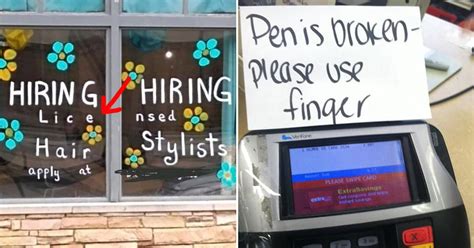 HIRING HIRING
Lice nsed
Hair Stylists
apply at
Pen is broken-
please use
finger
VeriFone
PLEASE SWIPE CARD
ExtraSavings